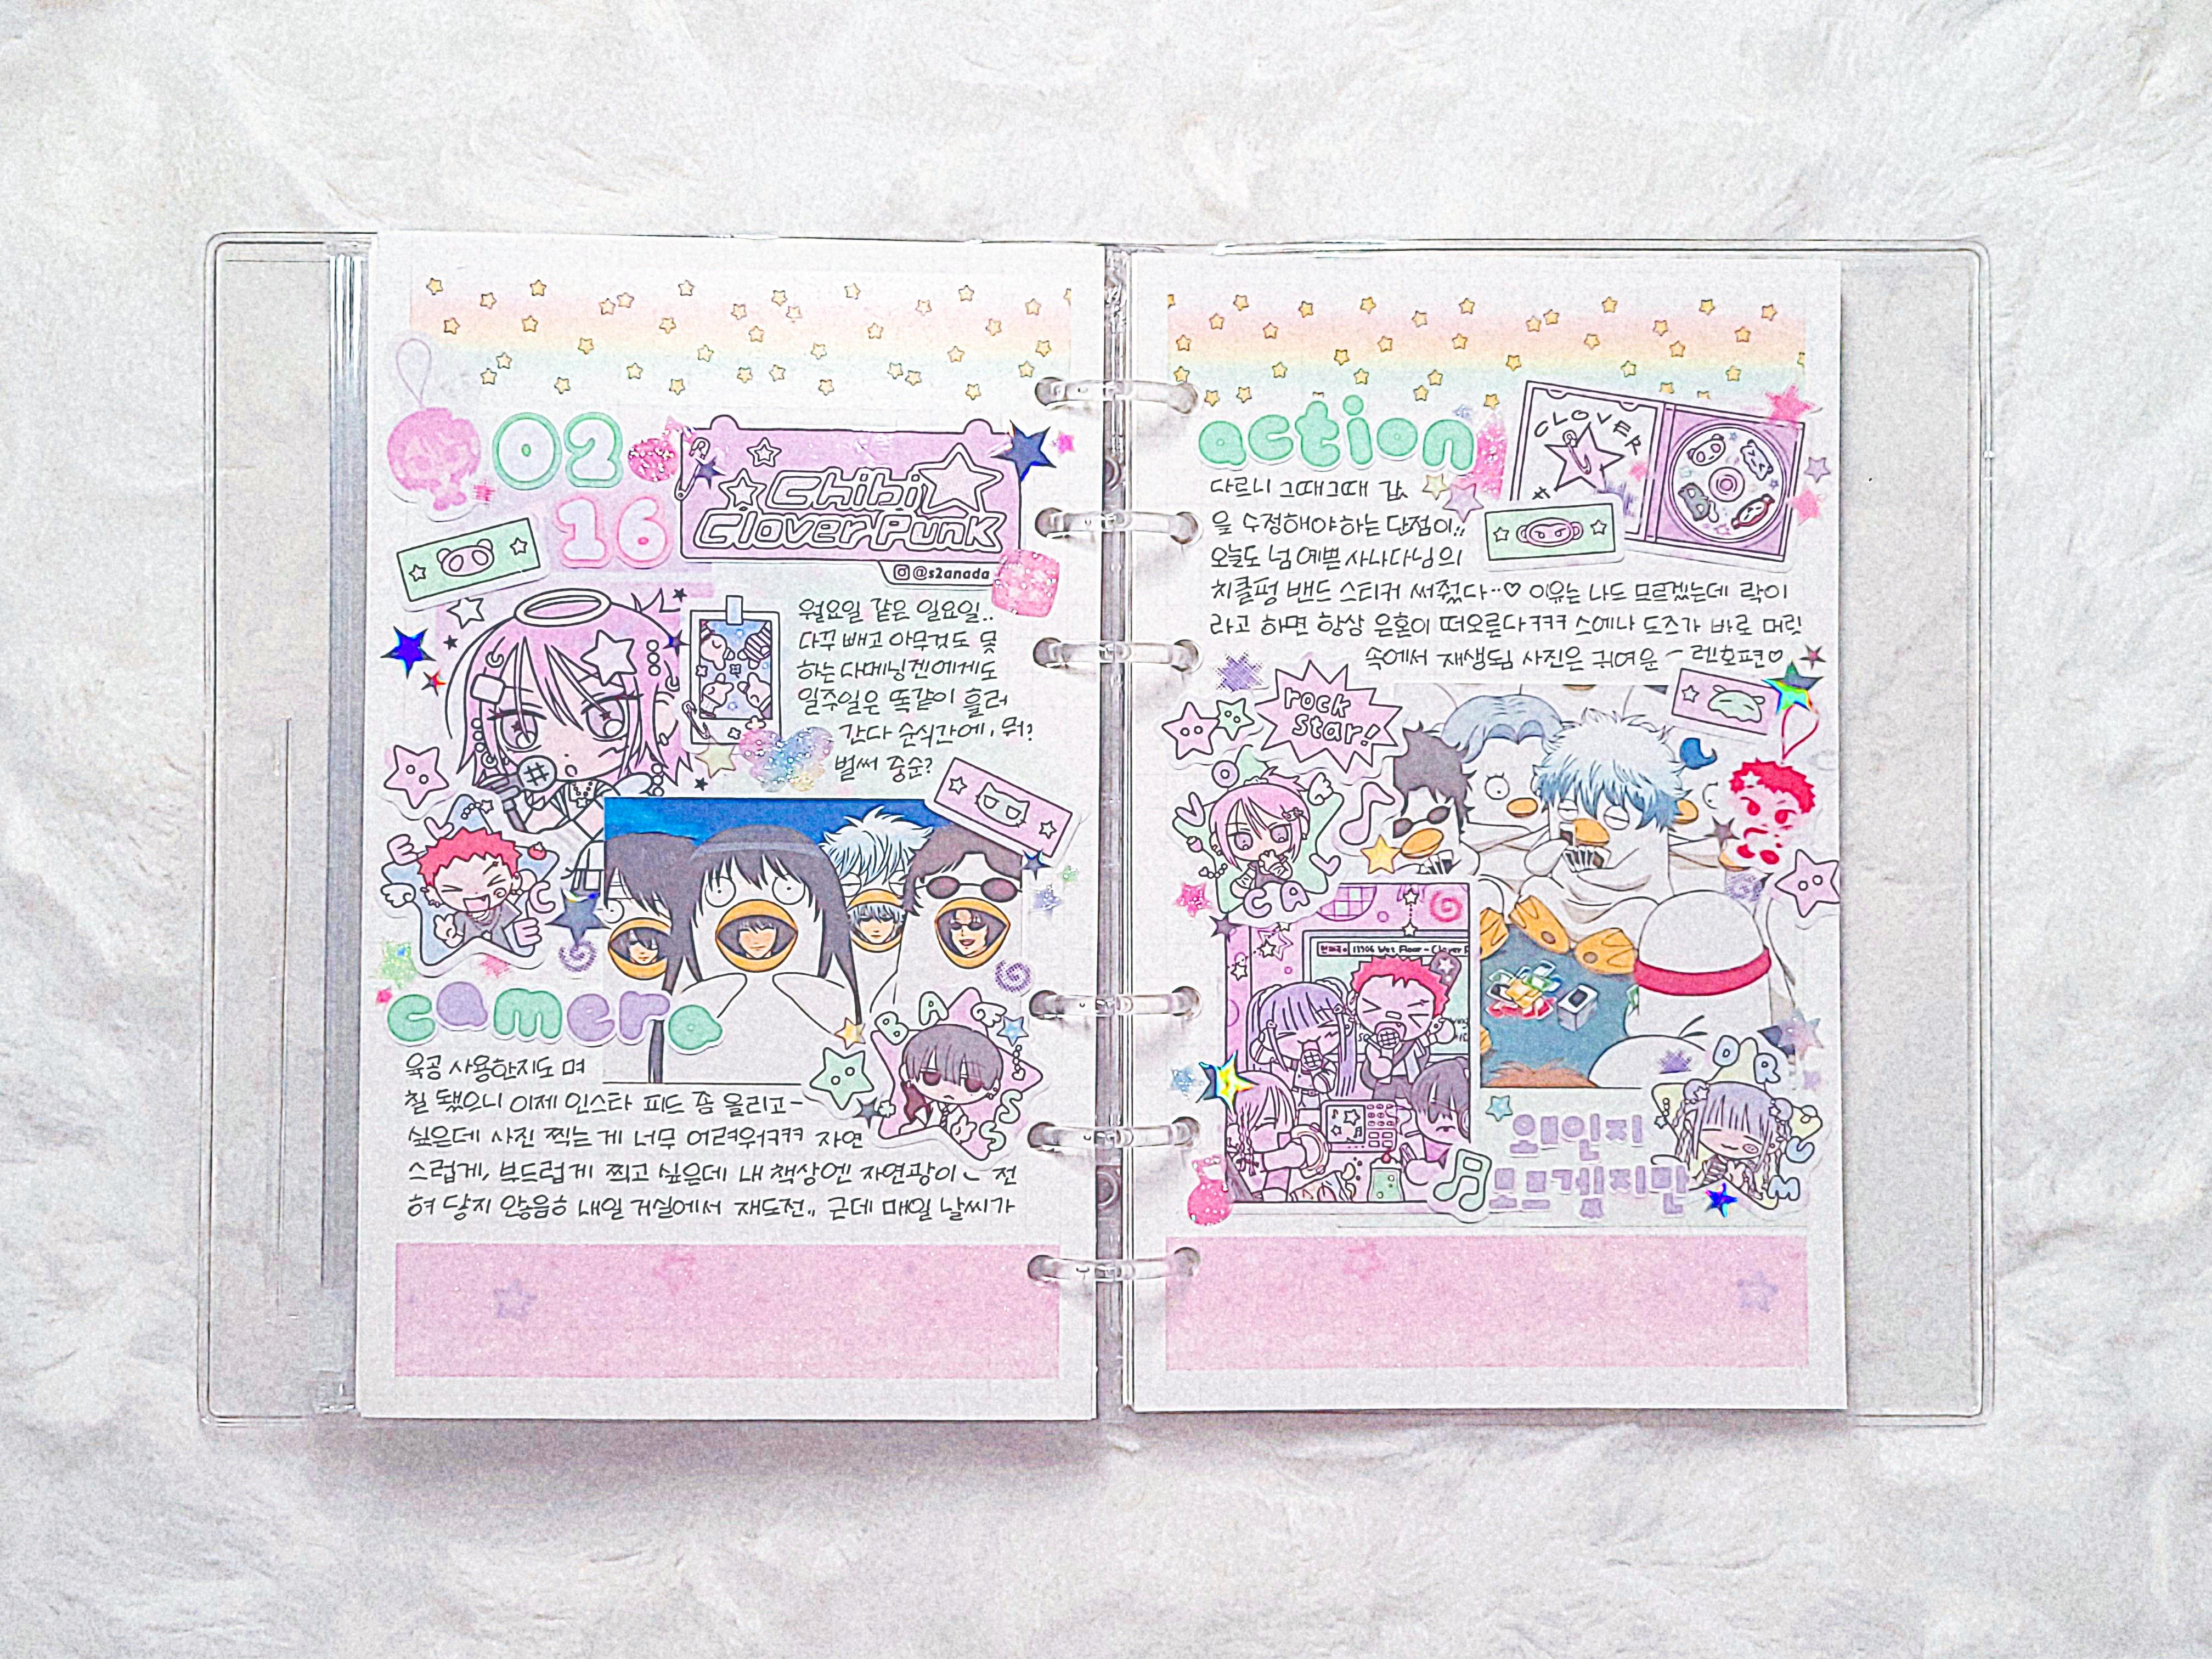 02
16
Chibi
CloverPunk
@s2anada
월요일 같은 일요일..
다꾸 빼고 아무것도 못
하는 다메닝겐에게도
일주일은 똑같이 흘러
간다 순식간에, 뭐?
벌써 중순?
ELEC
camera
BASS
육공 사용한지도 며
칠 됐으니 이제 인스타 피드 좀 올리고~
싶은데 사진 찍는 게 너무 어려워ㅋㅋㅋ 자연
스럽게, 부드럽게 찍고 싶은데 내 책상엔 자연광이 전
혀 닿지 않음ㅎ 내일 거실에서 재도전.. 근데 매일 날씨가
action
CLOVER
다르니 그때그때 값
을 수정해야하는 단점이;;
오늘도 넘 예쁜 사나다님의
치클펑 밴드 스티커 써줬다..♡ 이유는 나도 모르겠는데 락이
라고 하면 항상 은혼이 떠오른다ㅋㅋㅋ 스에나 도즈가 바로 머릿
속에서 재생됨 사진은 귀여운 ~ 렌호편♡
rock
star!
VOCAL
DRUM
왜인지
모르겠지만